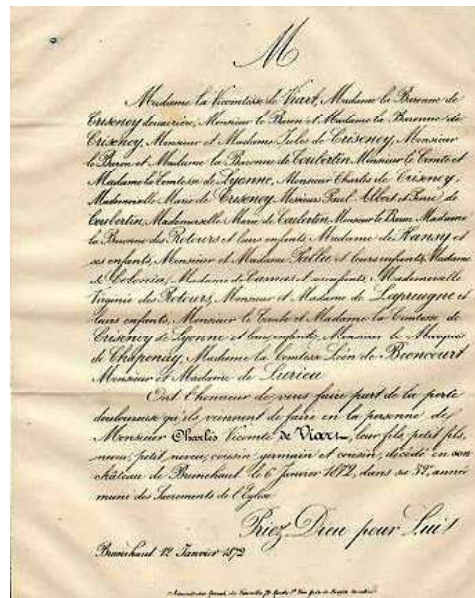 M
Madame la Vicomtesse de Viart, Madame la Baronne de
Crisenoy douairière, Monsieur le Baron et Madame la Baronne de
Crisenoy, Monsieur et Madame Jules de Crisenoy, Monsieur
le Baron et Madame la Baronne de Coubertin Monsieur le Comte et
Madame la Comtesse de Lyonne, Monsieur Charles de Crisenoy,
Mademoiselle Marie de Crisenoy, Messieurs Paul Albert et Pierre de
Coubertin, Mademoiselle Marie de Coubertin, Monsieur le Baron Madame
la Baronne des Rotours et leurs enfants, Madame de Hansy et
ses enfants, Monsieur et Madame et leurs enfants, Madame
de Colonia, Madame de Camas et ses enfants, Mademoiselle
Virginie des Rotours, Monsieur et Madame de et
leurs enfants, Monsieur le Comte et Madame la Comtesse de
Crisenoy de Lyonne et leurs enfants, Monsieur le Marquis
de Chaponay, Madame la Comtesse Léon de
Monsieur et Madame de Lurieu
Ont l'honneur de vous faire part de la perte
douloureuse qu'ils viennent de faire en la personne de
Monsieur Charles Vicomte de Viart, leur fils, petit fils,
neveu, petit neveu, cousin germain et cousin, décédé en son
château de Brunehaut le 6 Janvier 1872, dans sa 32e année
muni des Sacrements de l'Eglise
Priez Dieu pour Lui!
Brunehaut 12 Janvier 1872